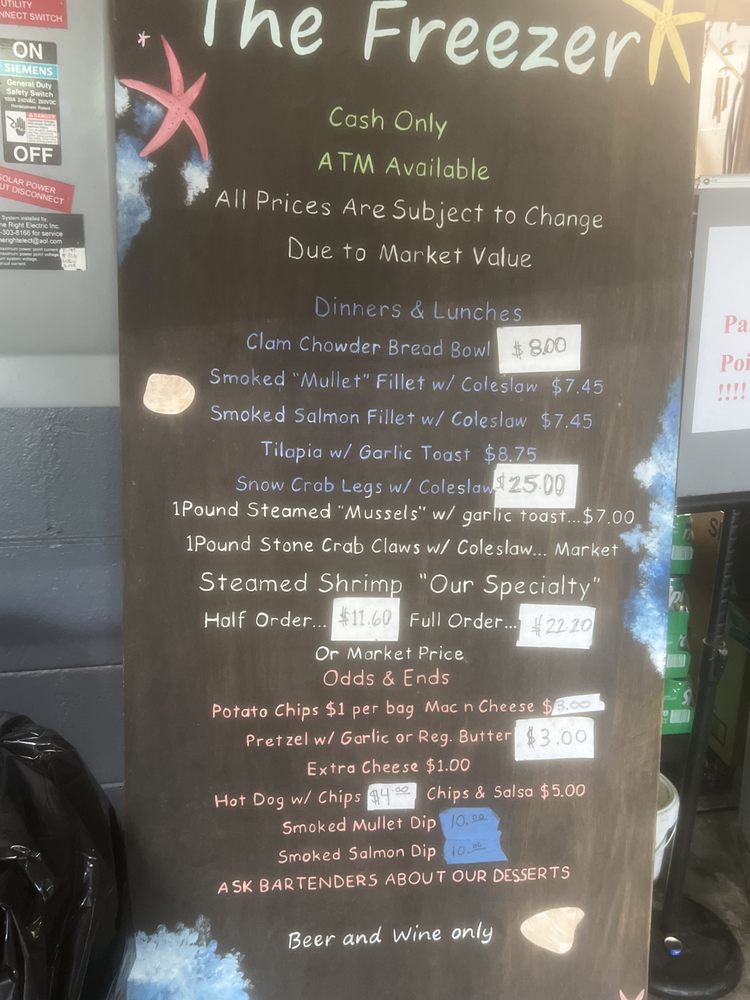 UTILITY
NNECT SWITCH
ON
SIEMENS
General Duty
Safety Switch
OFF
SOLAR POWER
UT DISCONNECT
System installed by
he Right Electric Inc.
-303-8166 for service
herightelect@aol.com
The Freezer
Cash Only
ATM Available
All Prices Are Subject to Change
Due to Market Value
Dinners & Lunches
Clam Chowder Bread Bowl $8.00
Smoked "Mullet" Fillet w/ Coleslaw $7.45
Smoked Salmon Fillet w/ Coleslaw $7.45
Tilapia w/ Garlic Toast $8.75
Snow Crab Legs w/ Coleslaw $25.00
1Pound Steamed "Mussels" w/ garlic toast...$7.00
1Pound Stone Crab Claws w/ Coleslaw... Market
Steamed Shrimp "Our Specialty"
Half Order... $11.60 Full Order... $22.20
Or Market Price
Odds & Ends
Potato Chips $1 per bag Mac n Cheese $3.00
Pretzel w/ Garlic or Reg. Butter $3.00
Extra Cheese $1.00
Hot Dog w/ Chips $4.00 Chips & Salsa $5.00
Smoked Mullet Dip 10.00
Smoked Salmon Dip 10.00
ASK BARTENDERS ABOUT OUR DESSERTS
Beer and Wine only
Pa
Poi
!!!!